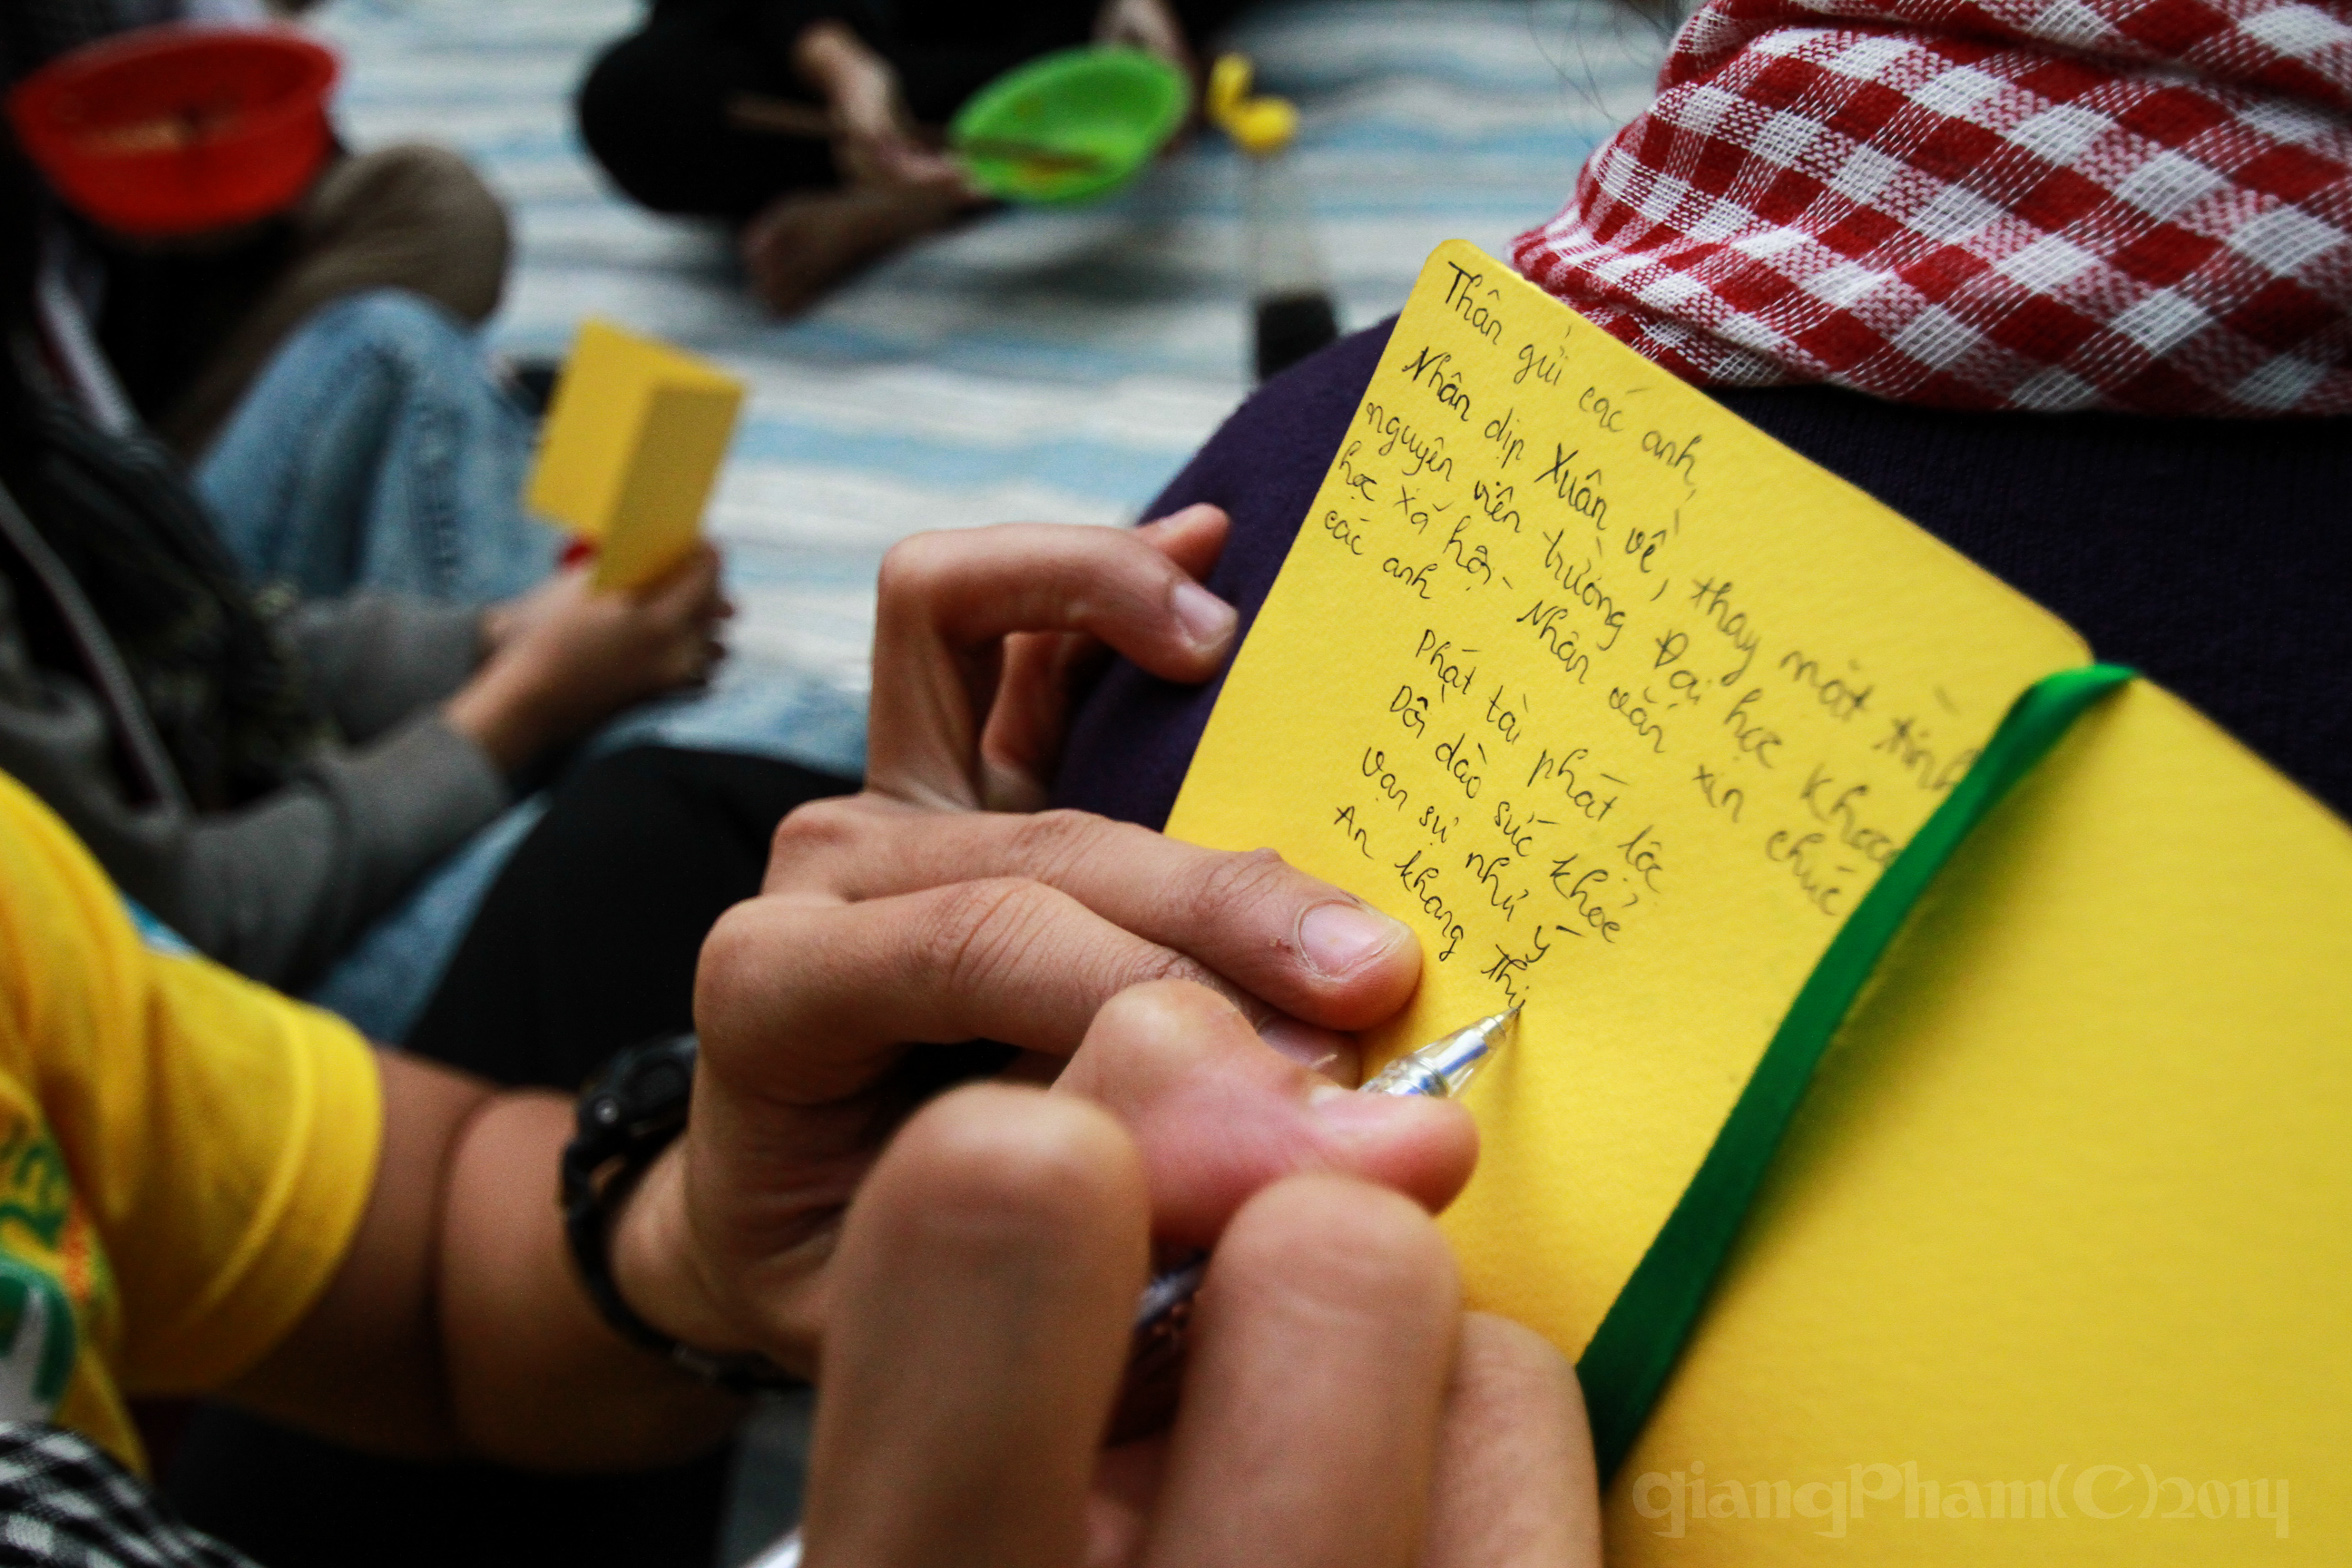 Thân gửi các anh,
Nhân dịp Xuân về, thay mặt tình
nguyện viên trường Đại học Khoa
học xã hội - Nhân văn xin chúc
các anh
Phát tài phát lộc
Dồi dào sức khỏe
Vạn sự như ý
An khang Thị
giangPham(C)2014